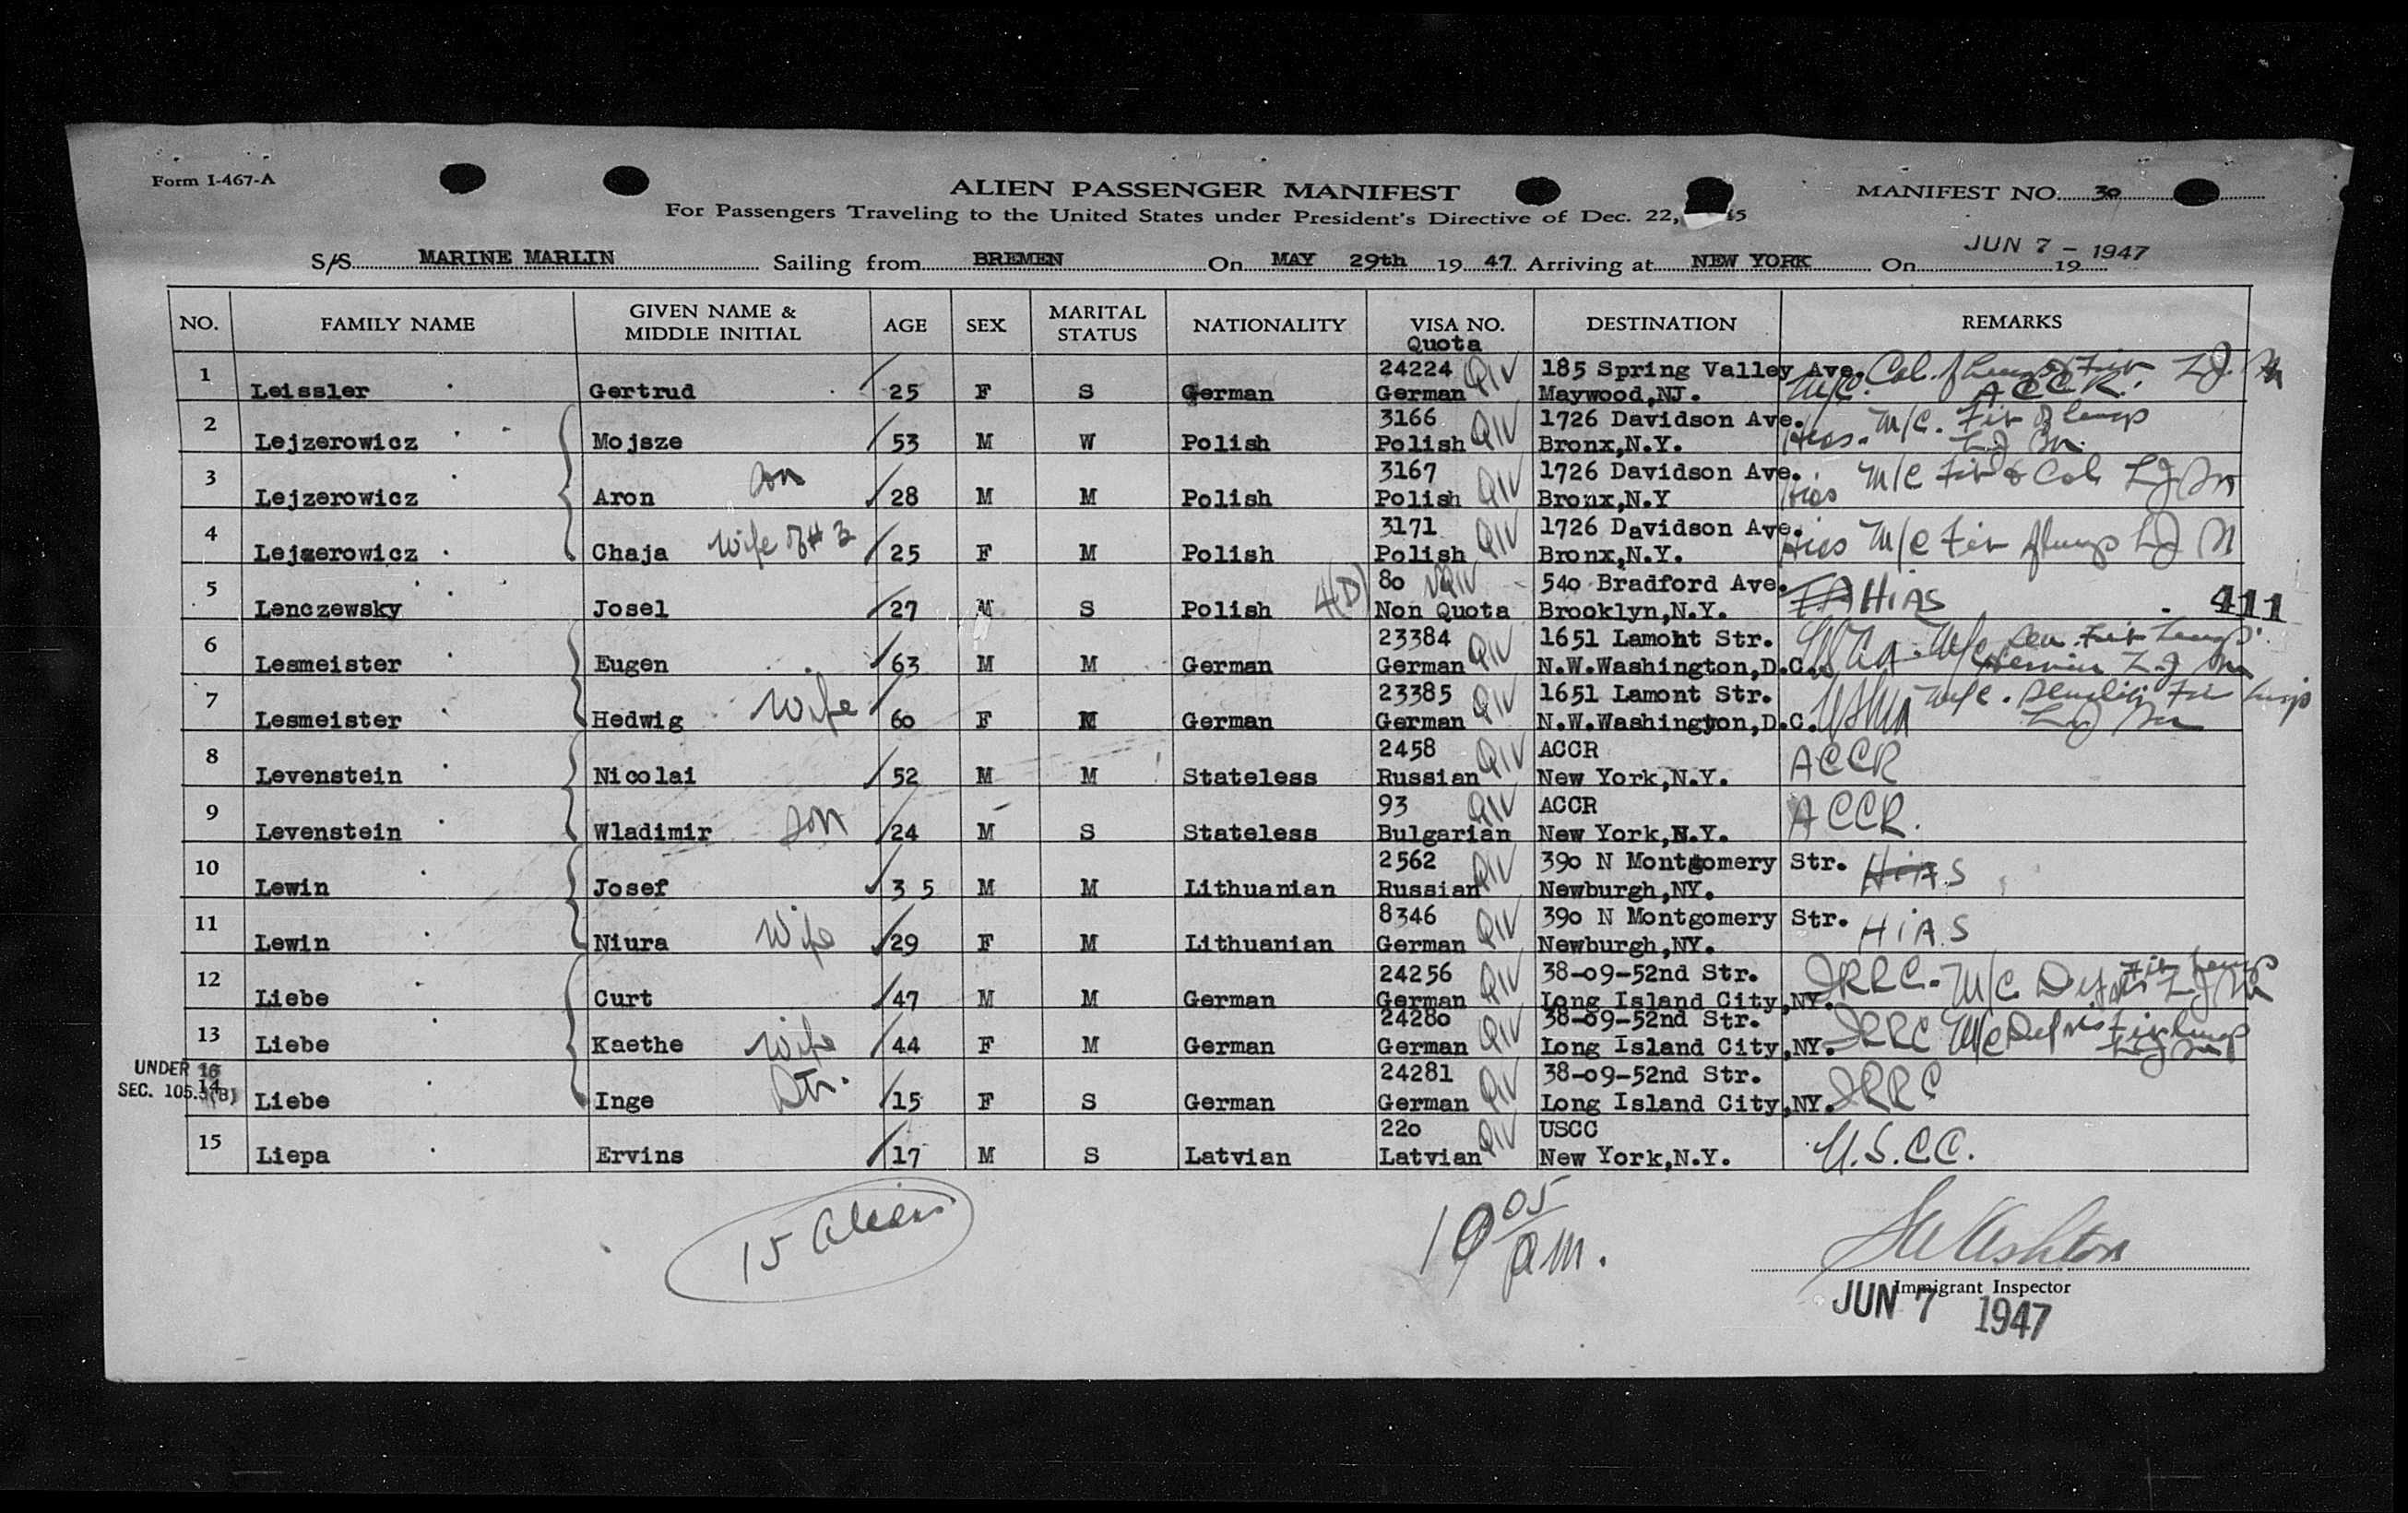 Form I-467-A
ALIEN PASSENGER MANIFEST
MANIFEST NO. 30
For Passengers Traveling to the United States under President's Directive of Dec. 22, 45
S/S MARINE MARLIN Sailing from BREMEN On MAY 29th 19 47 Arriving at NEW YORK On JUN 7 - 1947 19
NO. FAMILY NAME GIVEN NAME & MIDDLE INITIAL AGE SEX MARITAL STATUS NATIONALITY VISA NO. Quota DESTINATION REMARKS
1 Leissler Gertrud 25 F S German 24224 German QIV 185 Spring Valley Ave. Maywood,NJ. M/C. Col. ACCR.
2 Lejzerowicz Mojsze 53 M W Polish 3166 Polish QIV 1726 Davidson Ave. Bronx,N.Y. Hias. M/C.
3 Lejzerowicz Aron son 28 M M Polish 3167 Polish QIV 1726 Davidson Ave. Bronx,N.Y Hias M/C
4 Lejzerowicz Chaja Wife of # 3 25 F M Polish 3171 Polish QIV 1726 Davidson Ave. Bronx,N.Y. Hias M/C
5 Lenczewsky Josel 27 M S Polish 4(D) 80 NQIV Non Quota 540 Bradford Ave. Brooklyn,N.Y. HIAS 411
6 Lesmeister Eugen 63 M M German 23384 German QIV 1651 Lamont Str. N.W.Washington,D.C. M/C
7 Lesmeister Hedwig Wife 60 F M German 23385 German QIV 1651 Lamont Str. N.W.Washington,D.C. M/C.
8 Levenstein Nicolai 52 M M Stateless 2458 Russian QIV ACCR New York,N.Y. ACCR
9 Levenstein Wladimir son 24 M S Stateless 93 Bulgarian QIV ACCR New York,N.Y. ACCR.
10 Lewin Josef 3 5 M M Lithuanian 2562 Russian QIV 390 N Montgomery Str. Newburgh,NY. HIAS
11 Lewin Niura Wife 29 F M Lithuanian 8346 German QIV 390 N Montgomery Str. Newburgh,NY. HIAS
12 Liebe Curt 47 M M German 24256 German QIV 38-09-52nd Str. Long Island City,NY. IRRC. M/C
13 Liebe Kaethe Wife 44 F M German 24280 German QIV 38-09-52nd Str. Long Island City,NY. IRRC M/C
UNDER 16
SEC. 105.3(B)
14 Liebe Inge Dtr. 15 F S German 24281 German QIV 38-09-52nd Str. Long Island City,NY. IRRC
15 Liepa Ervins 17 M S Latvian 220 Latvian QIV USCC New York,N.Y. U.S.C.C.
15 aliens
10 05 am.
Immigrant Inspector
JUN 7 1947